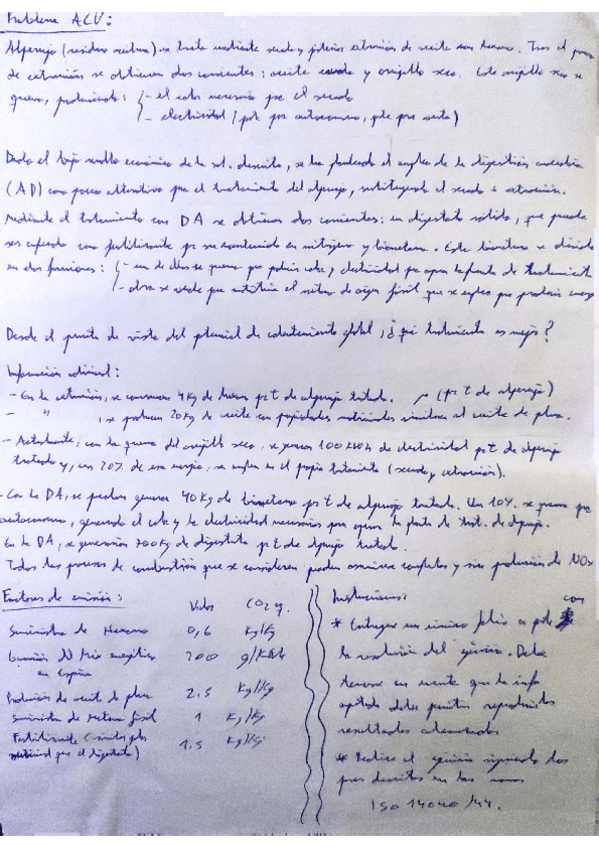 Problema ACV:
Alperujo (residuo oleícola) se trata mediante secado y posterior extracción de aceite con hexano. Tras el proceso
de extracción se obtienen dos corrientes: aceite crudo y orujillo seco. Este orujillo seco se
quema, produciendo: - el calor necesario para el secado
- electricidad (parte para autoconsumo, parte para venta)
Dado el bajo económico de la descrito, se ha planteado el empleo de la digestión anaerobia
(AD) como proceso alternativo para el tratamiento del alperujo, sustituyendo el secado + extracción.
Mediante el tratamiento con DA se obtienen dos corrientes: un digestato sólido, que puede
ser empleado como fertilizante por su contenido en nitrógeno y biometano. Este biometano se divide
en dos fracciones: - una de ellas se quema para producir calor y electricidad para operar la planta de tratamiento
- otra se vende para sustituir el metano de origen fósil que se emplea para producir energía
Desde el punto de vista del potencial de calentamiento global, ¿qué tratamiento es mejor?
Información adicional:
- En la extracción, se consumen 4 Kg de hexano por t de alperujo tratado. (por t de alperujo)
- " , se producen 20 Kg de aceite con propiedades similares al aceite de
- Actualmente, con la quema del orujillo seco, se generan 100 KWh de electricidad por t de alperujo
tratado y, un 20% de esa energía, se emplea en el propio tratamiento (secado y extracción).
- Con la DA, se pueden generar 40 Kg de biometano por t de alperujo tratado. Un 10% se quema para
autoconsumo, generando el calor y la electricidad necesarios para operar la planta de trat. de alperujo.
En la DA, se generarían 700 Kg de digestato por t de alperujo tratado.
Todos los procesos de combustión que se consideren pueden asumirse completos y sin producción de NOx
Factores de emisión: Valor CO2 eq.
Suministro de Hexano 0,6 Kg/Kg
Mix energético en España g/KWh
Producción de aceite de 2,5 Kg/Kg
Suministro de Metano fósil 1 Kg/Kg
Fertilizante (
nutricional que el digestato) 1,5 Kg/Kg
Instrucciones:
* Entregue un único folio
la resolución del ejercicio. Debe
tenerse en cuenta que la info
aportada debe permitir reproducir los
resultados
* Realice el ejercicio siguiendo los
pasos descritos en las normas
ISO 14040/44.